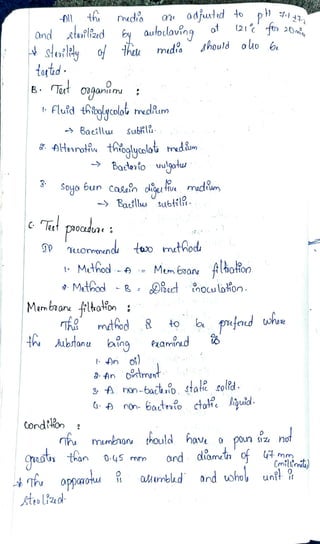 -All the media are adjusted to pH 7.1±7.1
and sterilized by autoclaving at 121°c for 20min
* sterility of these media should also be
tested.
B. Test organisms :
1. Fluid thioglycolate medium
→ Bacillus subtilis.
2. Alternative thioglycolate medium
→ Bacterio vulgatus
3. Soya bean casein digestive medium
→ Bacillus subtilis.
C. Test procedure :
IP recommends two methods
1. Method - A - Membrane filtration
2. Method - B - Direct inoculation.
Membrane filtration :
This method & to be prefered where
the substance being examined is
1. An oil
2. An ointment
3. A non-bacterio static solid.
4. A non-bacterio static liquid.
Condition :
The membrane should have a pour size not
greater than 0.45 mm and diameter of 47 mm
(millimeter)
* The apparatus is assembled and whole unit is
sterilized.